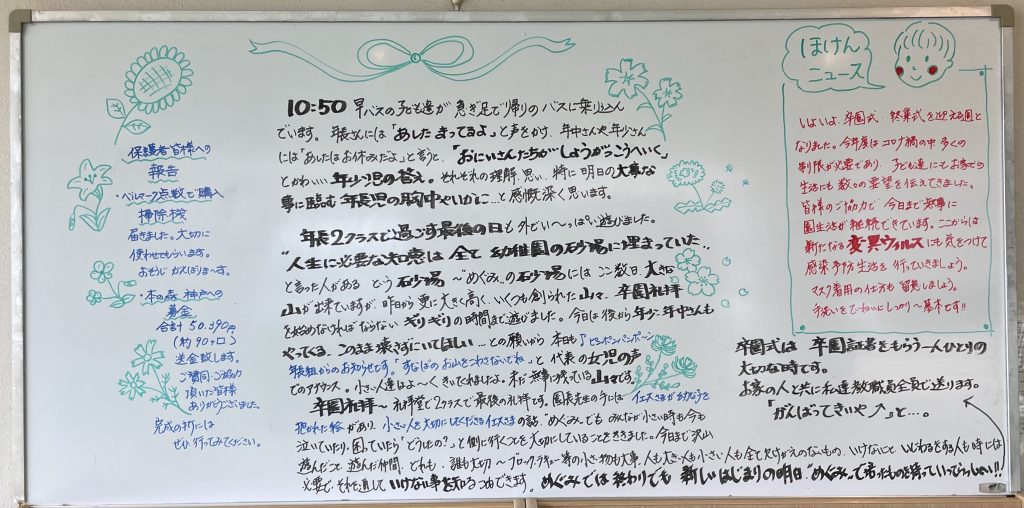 保護者皆様への
報告
・ベルマーク点数で購入
掃除機
届きました。大切に
使わせてもらいます。
おそうじ がんばりまーす。
・本の森 神戸への
募金
合計 50,390円
(約90ヶ口)
送金致します。
ご賛同・ご協力
頂いた皆様
ありがとうございました。
完成の折には
ぜひ行ってみてください。
10:50 早バスの子ども達が 急ぎ足で帰りのバスに乗り込ん
でいます。年長さんには「あしたまってるよ」と声をかけ、年中さんや年少さん
には「あしたはお休みだよ」と言うと、「おにいさんたちが しょうがっこうへいく」
とかわいい年少児の答え。それぞれの理解、思い、特に明日の大事な
事に臨む年長児の胸中やいかに…と感慨深く思います。
年長2クラスで過ごす最後の日も外でい〜っぱい遊びました。
"人生に必要な知恵は全て 幼稚園の砂場に埋まっていた"
と言った人がある という砂場〜"めぐみ"の砂場には ここ数日 大きな
山が出来ていますが、昨日から更に大きく高く、いくつも創られた山々、卒園礼拝
を始めなければならない ギリギリの時間まで遊びました。今日は後から年少・年中さんも
やってくる、このまま壊さずにいてほしい…との願いから 本日も♪ピンポンパンポーン
年長組からのお知らせです。「すなばのお山をこわさないでね」と代表の女児の声
でのアナウンス。小さい人達はよーくきいてくれましたよ。未だ無事に残っている山々です。
卒園礼拝〜礼拝堂で2クラスで最後の礼拝です。園長先生の手には イエスさまが
抱かれた絵があり、小さい人を大切にしてくださるイエスさまの話、めぐみでも みんなが小さい時も今も
泣いていたり、困っていたら「どうしたの?」と側に行くことを大切にしていることをききました。今日まで沢山
遊んだこと 遊んだ仲間、どれも、誰も大切〜ブロック、ラキュー等の小さい物も大事、人も大きい人も小さい人も全て欠けがえのないもの、いけないこと いじわるをする人も時には
必要で、それを通して いけない事を知る つもできます。"めぐみでは終わりでも 新しいはじまりの明日"めぐみ"で 待っていてらっしゃい!!
ほけん
ニュース
いよいよ、卒園式、終業式を迎える週と
なりました。今年度はコロナ禍の中 多くの
制限が必要であり、子ども達にもお家での
生活にも 数々の要望を伝えてきました。
皆様のご協力で 今日まで無事に
園生活が継続できています。ここからは
新たなる 変異ウィルスにも気をつけて
感染予防生活を 行っていきましょう。
マスク着用の仕方も 留意しましょう。
手洗いをていねいにしっかり〜基本です!!
卒園式は 卒園証書をもらう一人ひとりの
大切な時です。
お家の人と共に私達教職員全員で送ります。
「がんばってきいや↗」と…。